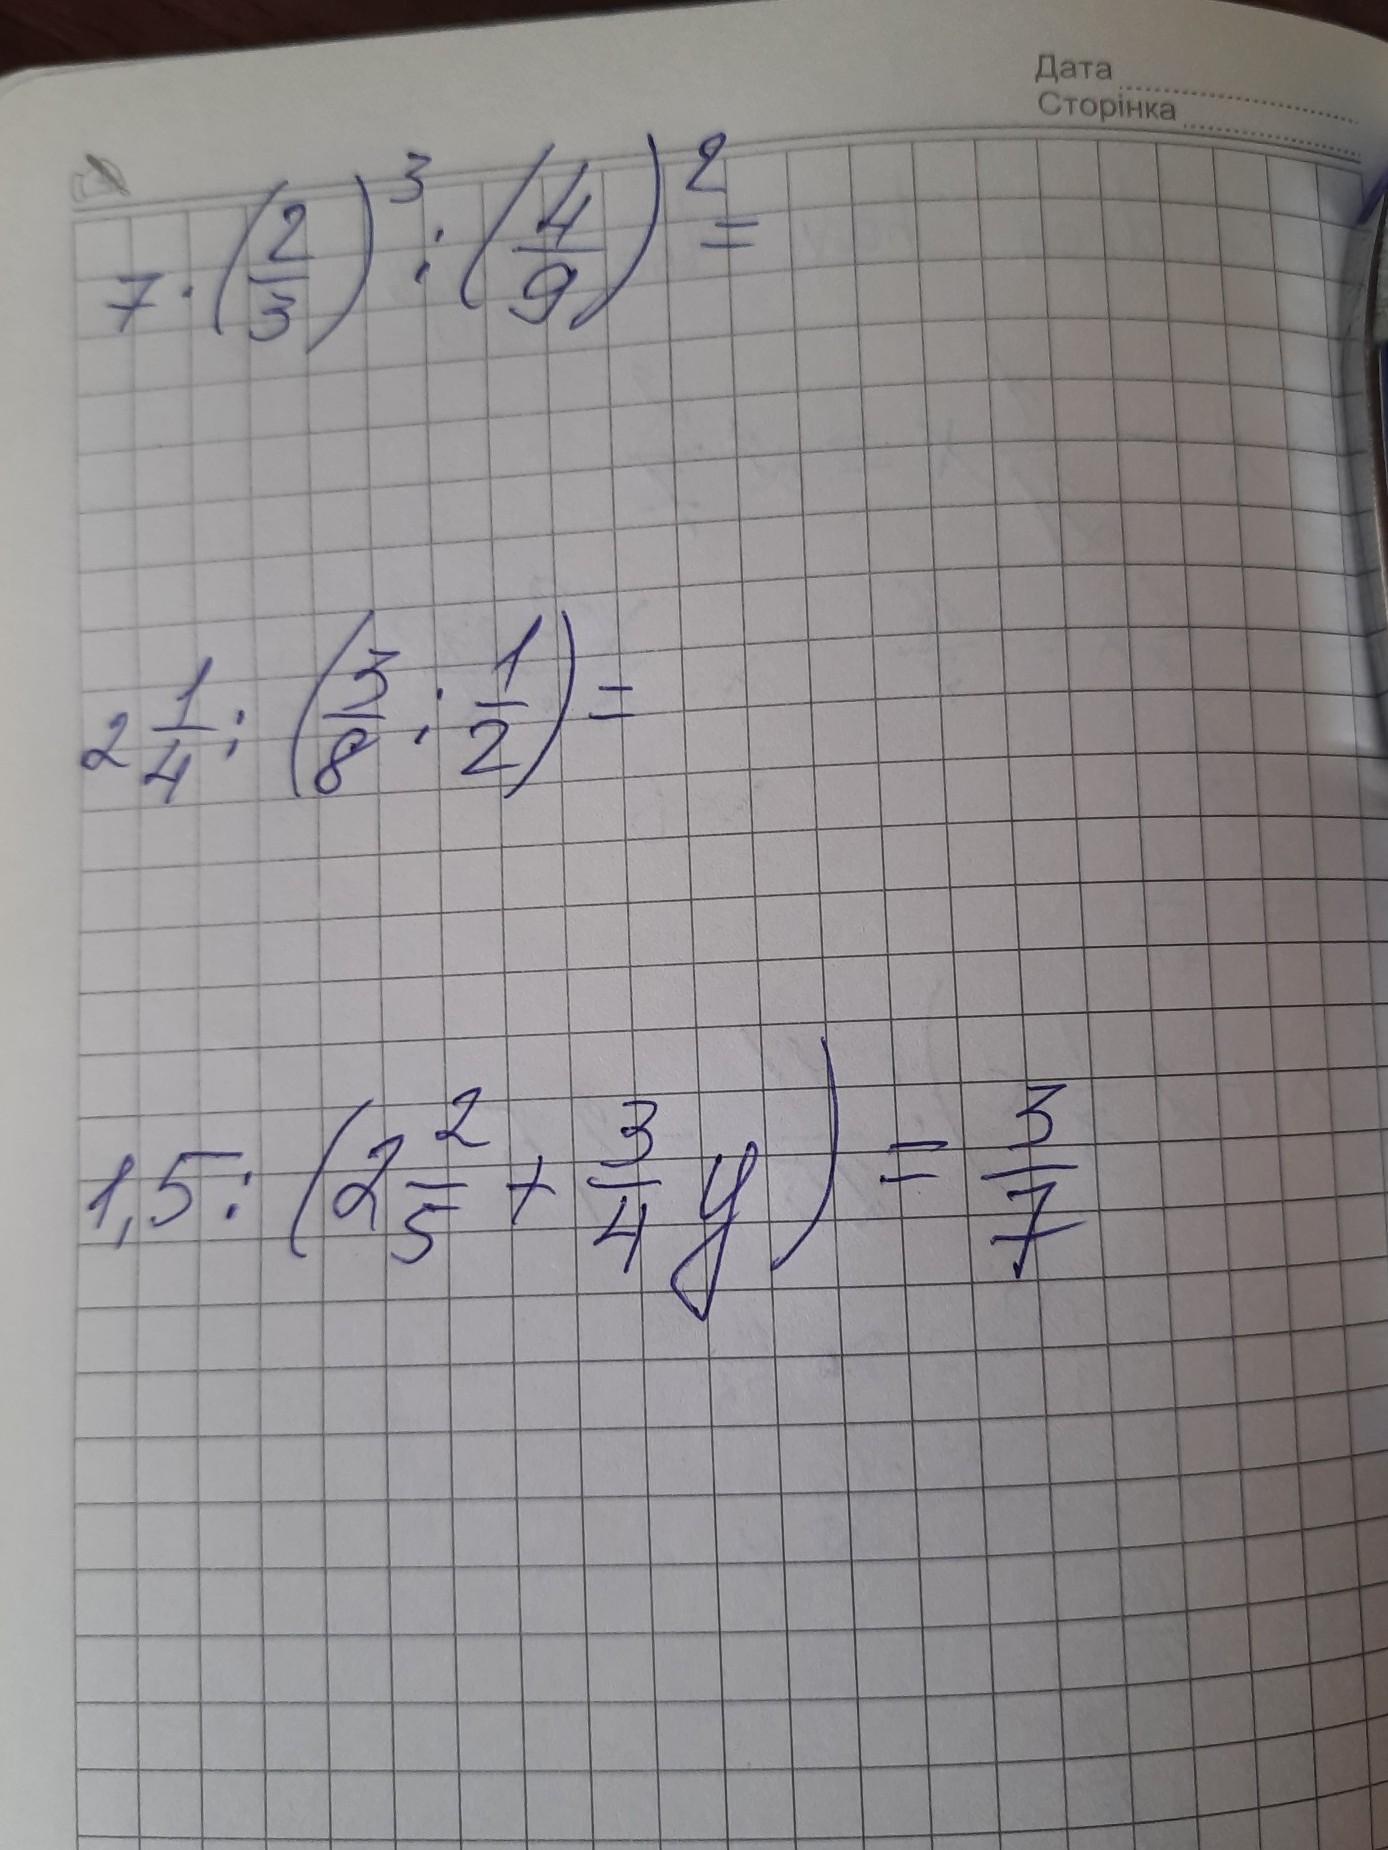 Дата
Сторінка
7 · (2/3)³ : (4/9)² =
2 1/4 : (3/8 : 1/2) =
1,5 : (2 2/5 + 3/4 y) = 3/7